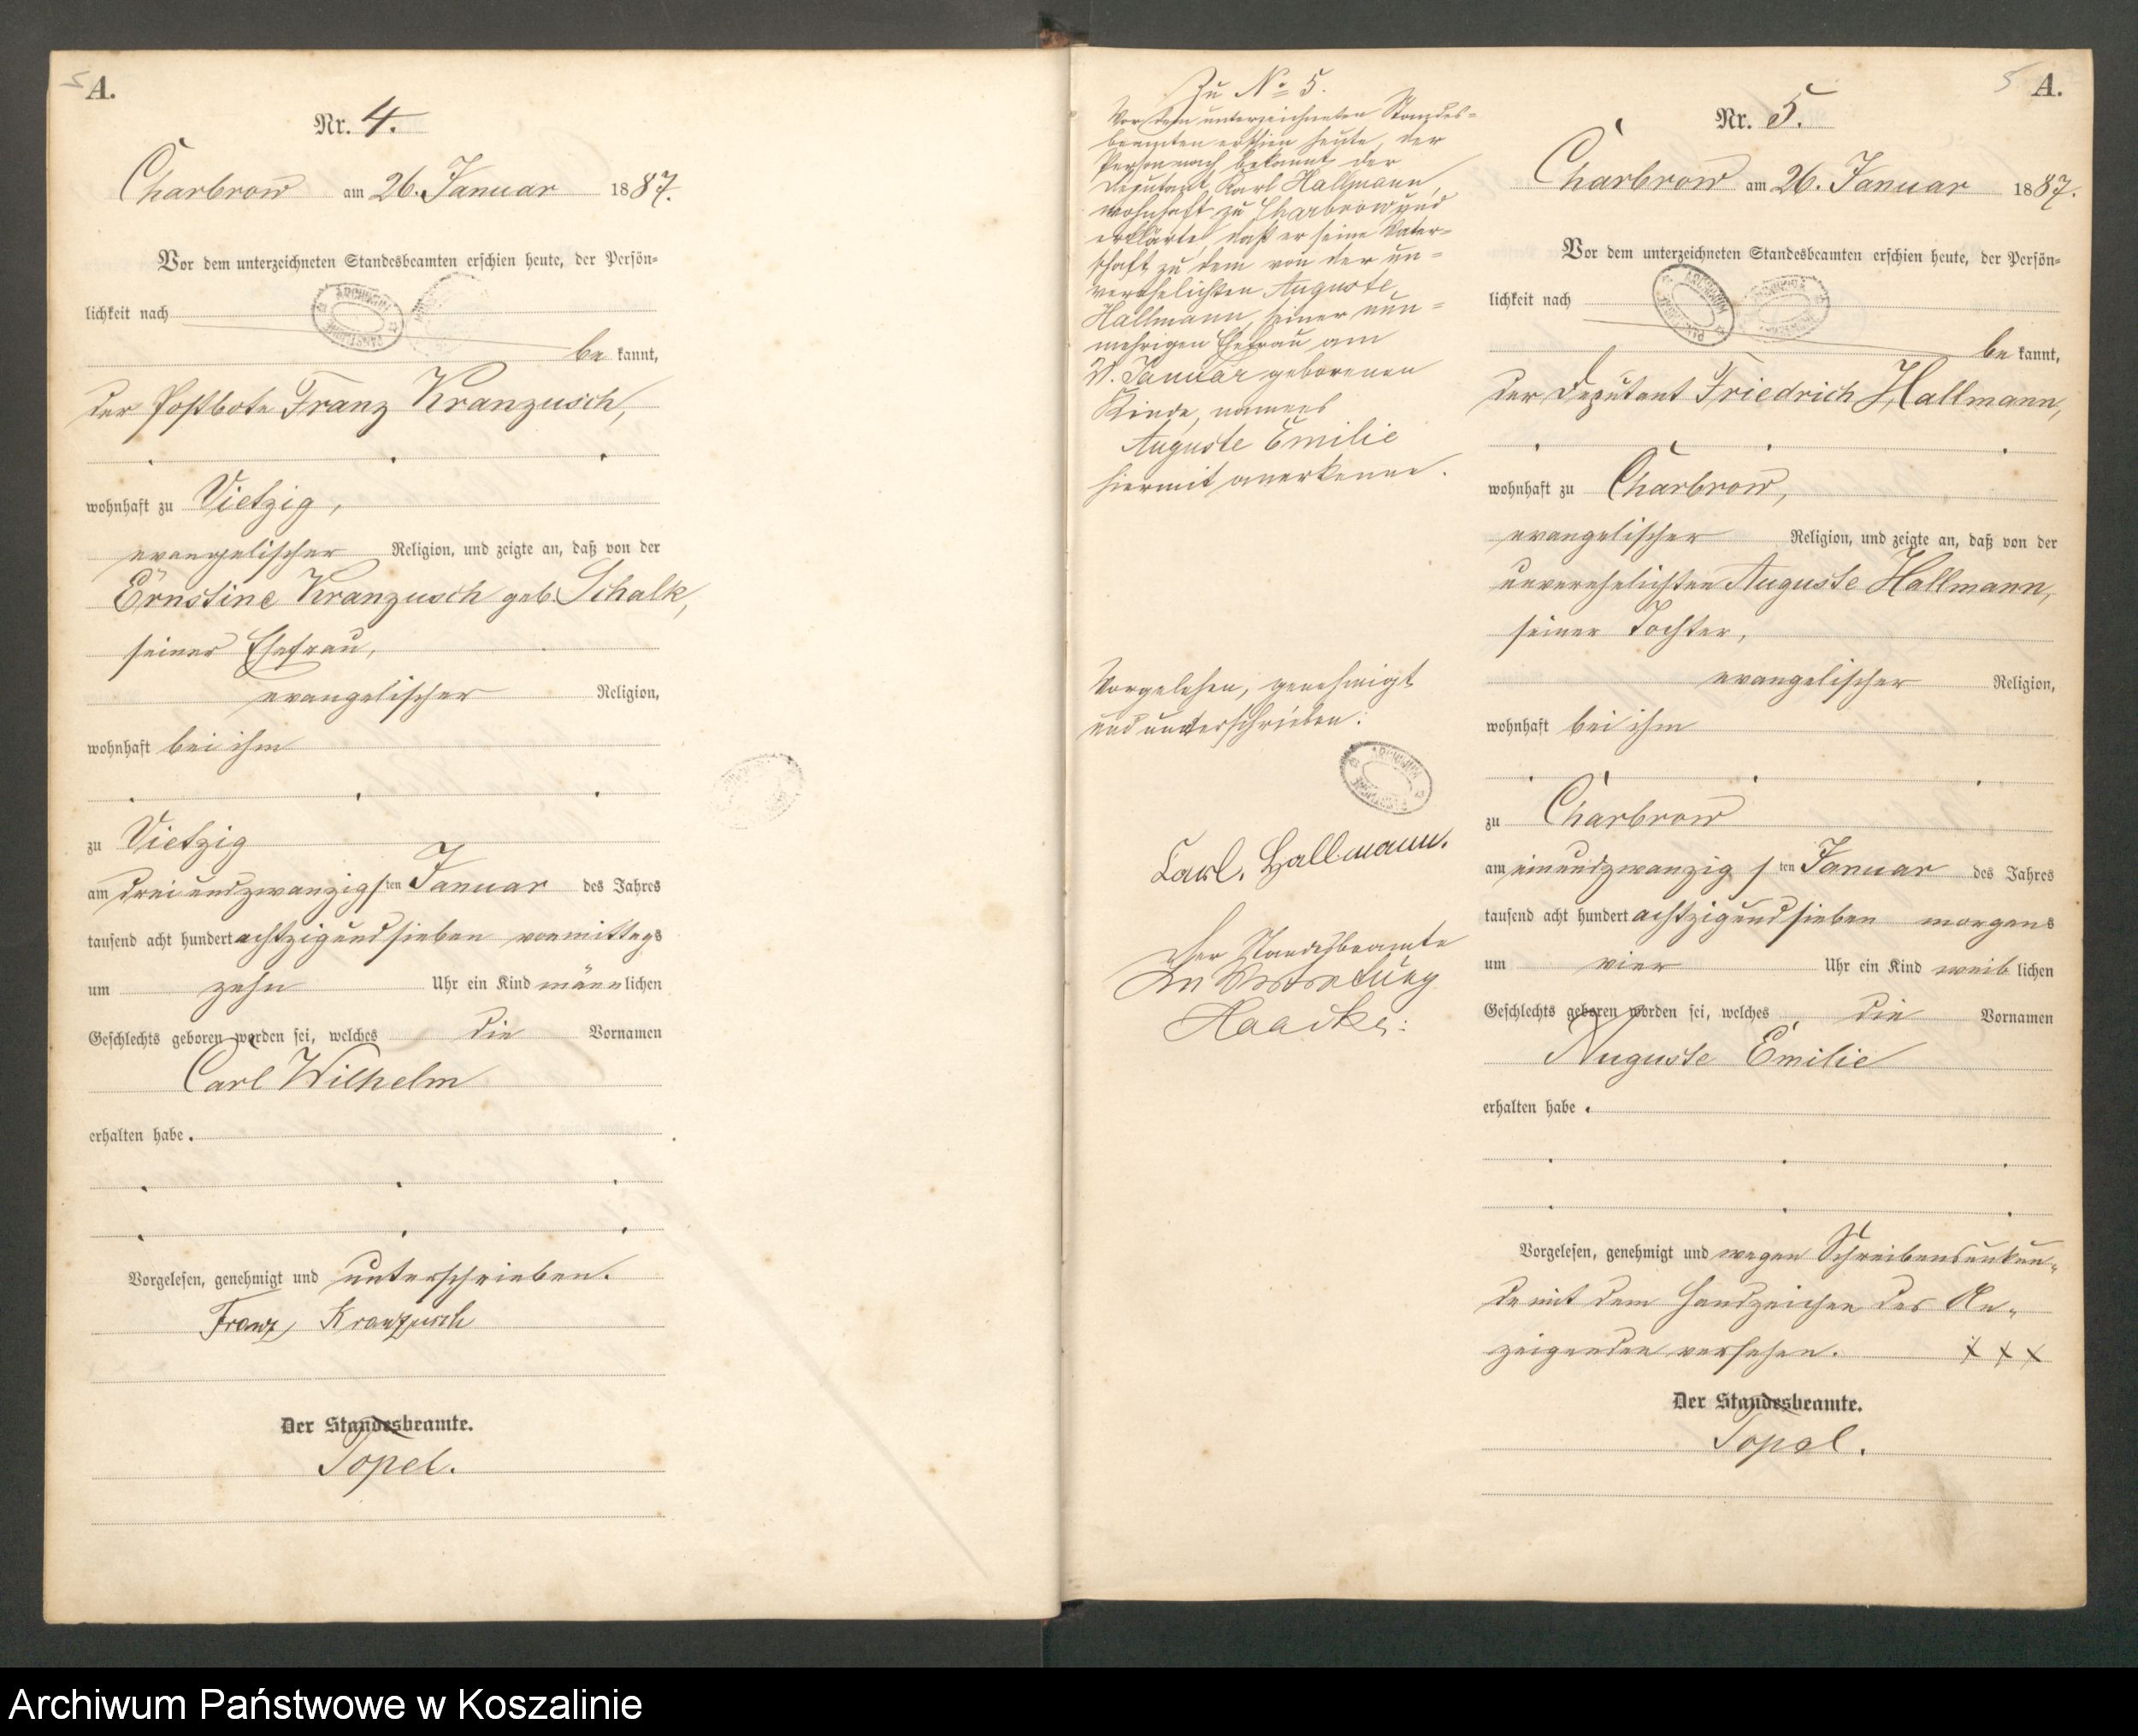 5 A.
Nr. 4.
Charbrow am 26. Januar 1887.
Vor dem unterzeichneten Standesbeamten erschien heute, der Persön=
lichkeit nach
be kannt,
der Postbote Franz Kranzusch,
wohnhaft zu Vietzig,
evangelischer Religion, und zeigte an, daß von der
Ernstine Kranzusch geb. Schalk,
seiner Ehefrau,
evangelischer Religion,
wohnhaft bei ihm
zu Vietzig
am dreiundzwanzigsten Januar des Jahres
tausend acht hundert achtzigundsieben vormittags
um zehn Uhr ein Kind männlichen
Geschlechts geboren worden sei, welches die Vornamen
Carl Wilhelm
erhalten habe.
Vorgelesen, genehmigt und unterschrieben.
Franz Kranzusch
Der Standesbeamte.
Topel.
Zu No 5.
Vor dem unterzeichneten Standes=
beamten erschien heute, der
Person nach bekannt der
Deputant Karl Hallmann,
wohnhaft zu Charbrow und
erklärte, daß er seine Vater=
schaft zu dem von der un=
verehelichten Auguste
Hallmann, seiner nun=
mehrigen Ehefrau am
21. Januar geborenen
Kinde, namens
Auguste Emilie
hiermit anerkenne.
Vorgelesen, genehmigt
und unterschrieben:
Carl. Hallmann.
Der Standesbeamte
In Vertretung
Haacke:
5 A.
Nr. 5.
Charbrow am 26. Januar 1887.
Vor dem unterzeichneten Standesbeamten erschien heute, der Persön=
lichkeit nach
be kannt,
der Deputant Friedrich Hallmann,
wohnhaft zu Charbrow,
evangelischer Religion, und zeigte an, daß von der
unverehelichten Auguste Hallmann,
seiner Tochter,
evangelischer Religion,
wohnhaft bei ihm
zu Charbrow
am einundzwanzigsten Januar des Jahres
tausend acht hundert achtzigundsieben morgens
um vier Uhr ein Kind weiblichen
Geschlechts geboren worden sei, welches die Vornamen
Auguste Emilie
erhalten habe.
Vorgelesen, genehmigt und wegen Schreibensunkun=
de mit dem Handzeichen des An=
zeigenden versehen. x x x
Der Standesbeamte.
Topel.
Archiwum Państwowe w Koszalinie